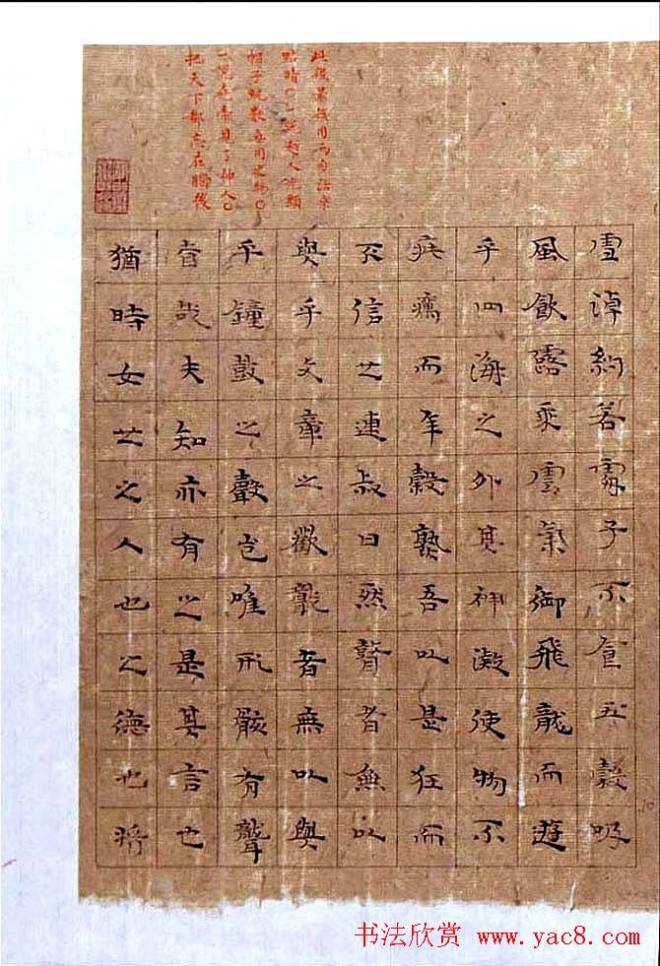 此後
點睛〇一說越人
帽子
一說
把天下都忘在腦後
雪淖約若處子不食五穀吸
風飲露乘雲氣御飛龍而遊
乎四海之外其神凝使物不
疵癘而年穀熟吾以是狂而
不信也連叔曰然瞽者無以
與乎文章之觀聾者無以與
乎鐘鼓之聲豈唯形骸有聾
盲哉夫知亦有之是其言也
猶時女也之人也之德也將
书法欣赏 www.yac8.com